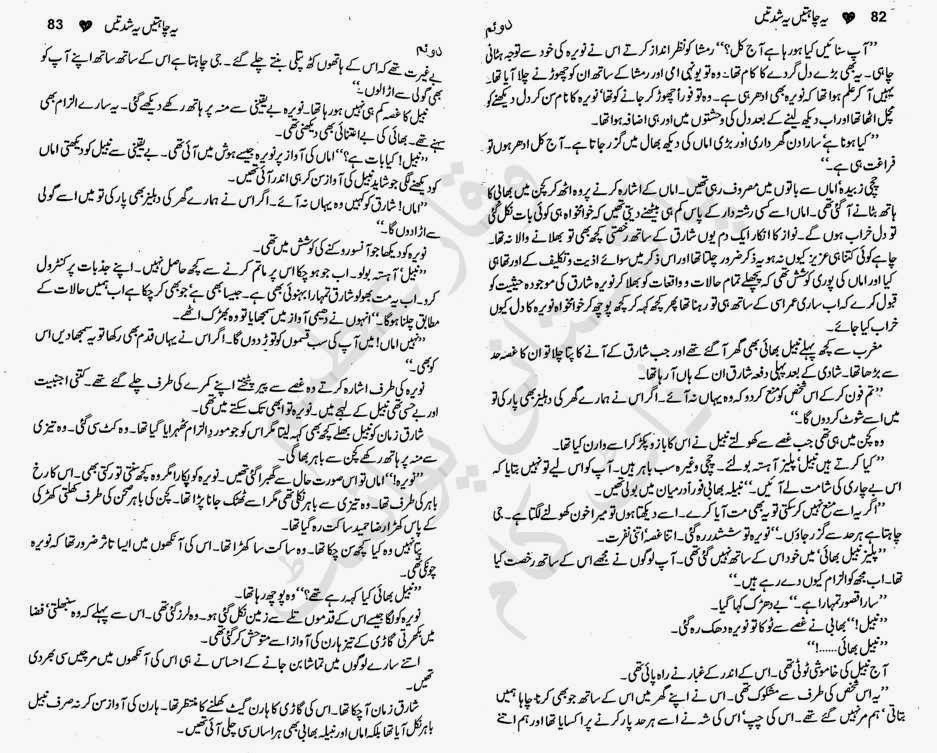 82 ♥ یہ چاہتیں یہ شدتیں
دوئم
’’آپ سنائیں کیا ہو رہا ہے آج کل؟‘‘ رمشا کو نظر انداز کرتے اس نے نویرہ کی خود سے توجہ ہٹانی
چاہی۔ یہ بھی بڑے دل گردے کا کام تھا۔ وہ تو یونہی امی اور رمشا کے ساتھ ان کو چھوڑنے چلا آیا تھا
یہیں آ کر علم ہوا تھا کہ نویرہ بھی ادھر ہی ہے۔ وہ تو فوراً چھوڑ کر جانے کو تھا‘ نویرہ کا نام سن کر دل دیکھنے کو
مچل اٹھا تھا اور اب دیکھ لینے کے بعد دل کی وحشتوں میں اور ہی اضافہ ہوا تھا۔
’’کیا ہونا ہے‘ سارا دن گھر داری اور بڑی اماں کی دیکھ بھال میں گزر جاتا ہے۔ آج کل ادھر ہوں تو
فراغت ہی ہے۔‘‘
چچی زبیدہ‘ اماں سے باتوں میں مصروف رہی تھیں۔ اماں کے اشارہ کرنے پر وہ اٹھ کر کچن میں بھابی کا
ہاتھ بٹانے آ گئی تھی۔ اماں اسے کسی رشتہ دار کے پاس کم ہی بیٹھنے دیتی تھیں کہ خوانخواہ ہی کوئی بات نکل گئی
تو دل خراب ہوں گے۔ نواز کا انکار ایک دم یوں شارق کے ساتھ رخصتی کچھ بھی تو بھلانے والا نہ تھا۔
چاہے کوئی کتنا ہی عزیز کیوں نہ ہو یہ ذکر ضرور چلتا تھا اور اس ذکر میں سوائے اذیت و تکلیف کے اور تھا ہی
کیا اور اماں کی پوری کوشش تھی کہ پچھلے تمام حالات و واقعات کو بھلا کر نویرہ شارق کی موجودہ حیثیت کو
قبول کرے کہ اب ساری عمر اسی کے ساتھ ہی تو رہنا تھا پھر کچھ کہہ کر کچھ پوچھ کر خوانخواہ نویرہ کا دل کیوں
خراب کیا جائے۔
مغرب سے کچھ پہلے نبیل بھائی بھی گھر آ گئے تھے اور جب شارق کے آنے کا پتا چلا تو ان کا غصہ حد
سے بڑھا تھا۔ شادی کے بعد پہلی دفعہ شارق ان کے ہاں آ رہا تھا۔
’’تم فون کر کے اس شخص کو منع کر دو کہ وہ یہاں نہ آئے۔ اگر اس نے ہمارے گھر کی دہلیز بھی پار کی تو
میں اسے شوٹ کر دوں گا۔‘‘
وہ کچن میں ہی تھی جب غصے سے کھولتے نبیل نے اس کا بازو پکڑ کر اسے وارن کیا تھا۔
’’کیا کرتے ہیں نبیل‘ پلیز آہستہ بولئے۔ چچی وغیرہ سب باہر ہیں۔ آپ کو اس لیے تو نہیں بتایا کہ
اس بے چاری کی شامت لے آئیں۔‘‘ نبیلہ بھابی فوراً درمیان میں بولی تھیں۔
’’اگر یہ اسے منع نہیں کر سکتی تو یہ بھی مت آیا کرے۔ اسے دیکھتا ہوں تو میرا خون کھولنے لگتا ہے۔ جی
چاہتا ہے ہر حد سے گزر جاؤں۔‘‘ نویرہ تو ششدر رہ گئی۔ اتنا غصہ‘ اتنی نفرت۔
’’پلیز نبیل بھائی‘ میں خود اس کے ساتھ نہیں گئی تھی۔ آپ لوگوں نے مجھے اس کے ساتھ رخصت کیا
تھا۔ اب مجھ کو الزام کیوں دے رہے ہیں۔‘‘
’’سارا قصور تمہارا ہے۔‘‘ بے دھڑک کہا گیا۔
’’نبیل!‘‘ بھابی نے غصے سے ٹوکا تو نویرہ دھک رہ گئی۔
’’نبیل بھائی.....!‘‘
آج نبیل کی خاموشی ٹوٹی تھی۔ اس کے اندر کے غبار نے راہ پائی تھی۔
’’یہ اس شخص کی طرف سے مشکوک تھی۔ اس نے اپنے گھر میں اس کے ساتھ جو بھی کرنا چاہا ہمیں
بتاتی‘ ہم مر نہیں گئے تھے۔ اس کی چپ‘ اس کی شہ نے اسے ہر حد پار کرنے پر اکسایا تھا اور ہم اتنے
یہ چاہتیں یہ شدتیں ♥ 83
دوئم
بے غیرت تھے کہ اس کے ہاتھوں کٹھ پتلی بنتے چلے گئے۔ جی چاہتا ہے اس کے ساتھ ساتھ اپنے آپ کو
بھی گولی سے اڑا لوں۔‘‘
نبیل کا غصہ کم ہی نہیں ہو رہا تھا۔ نویرہ بے یقینی سے منہ پر ہاتھ رکھے دیکھے گئی۔ یہ سارے الزام بھی
سہنے تھے۔ بھائی کی بے اعتنائی بھی دیکھنی تھی۔
’’نبیل! کیا بات ہے؟‘‘ اماں کی آواز پر نویرہ جیسے ہوش میں آئی تھی۔ بے یقینی سے نبیل کو دیکھتی اماں
کو دیکھنے لگی جو شاید نبیل کی آواز سن کر ہی اندر آئی تھیں۔
’’اماں! شارق کو کہیں وہ یہاں نہ آئے۔ اگر اس نے ہمارے گھر کی دہلیز بھی پار کی تو میں اسے گولی
سے اڑا دوں گا۔‘‘
نویرہ کو دیکھا جو آنسو روکنے کی کوشش میں تھی۔
’’نبیل‘ آہستہ بولو۔ اب جو ہو چکا اس پر ماتم کرنے سے کچھ حاصل نہیں۔ اپنے جذبات پر کنٹرول
کرو۔ اب یہ مت بھولو شارق تمہارا بہنوئی بھی ہے۔ جیسا بھی ہے‘ جو بھی کر چکا ہے اب ہمیں حالات کے
مطابق چلنا ہو گا۔‘‘ انہوں نے دھیمی آواز میں سمجھایا تو وہ بھڑک اٹھے۔
’’نہیں اماں! میں آپ کی سب قسموں کو توڑ دوں گا۔ اگر اس نے یہاں قدم بھی رکھا تو یہ سمجھا دیں اس
کو بھی۔‘‘
نویرہ کی طرف اشارہ کرتے وہ غصے سے پیر پٹختے اپنے کمرے کی طرف چلے گئے تھے۔ کتنی اجنبیت
اور بے حسی تھی نبیل کے لہجے میں۔ نویرہ تو ابھی تک سکتے میں تھی۔
شارق زمان کو نبیل بھلے کچھ بھی کہہ لیتا مگر اس کو جو مورد الزام ٹھہرایا گیا تھا۔ وہ کٹ سی گئی۔ وہ تیزی
سے منہ پر ہاتھ رکھے کچن سے باہر بھاگی۔
’’نویرہ!‘‘ اماں تو اس صورت حال سے گھبرا گئی تھیں۔ نویرہ کو پکارا مگر وہ کچھ سنتی تو رکتی بھی۔ اس کا رخ
باہر کی طرف تھا۔ وہ تیزی سے باہر نکلی تھی مگر اسے ٹھٹک جانا پڑا تھا۔ کچن کی باہر صحن کی طرف کھلتی کھڑکی
کے پاس کھڑا رضا حمید ساکت رہ گیا تھا۔
پتا نہیں وہ کیا کچھ سن چکا تھا۔ وہ ساکت سا کھڑا تھا۔ اس کی آنکھوں میں ایسا تاثر ضرور تھا کہ نویرہ
چونکی تھی۔
’’نبیل بھائی کیا کہہ رہے تھے؟‘‘ وہ پوچھ رہا تھا۔
نویرہ کو لگا جیسے اس کے قدموں تلے سے زمین نکل گئی ہو۔ وہ لرز گئی تھی۔ اس سے پہلے کہ وہ سنبھلتی‘ فضا
میں بکھرتی گاڑی کے تیز ہارن کی آواز اسے متوحش کر گئی تھی۔
اتنے سارے لوگوں میں تماشا بن جانے کے احساس نے ہی اس کی آنکھوں میں مرچیں سی بھر دی
تھیں۔
شارق زمان آ چکا تھا۔ اس کی گاڑی کا ہارن گیٹ کھلنے کا منتظر تھا۔ ہارن کی آواز سن کر نہ صرف نبیل
باہر نکل آیا تھا بلکہ اماں اور نبیلہ بھابی بھی ہراساں سی چلی آئی تھیں۔